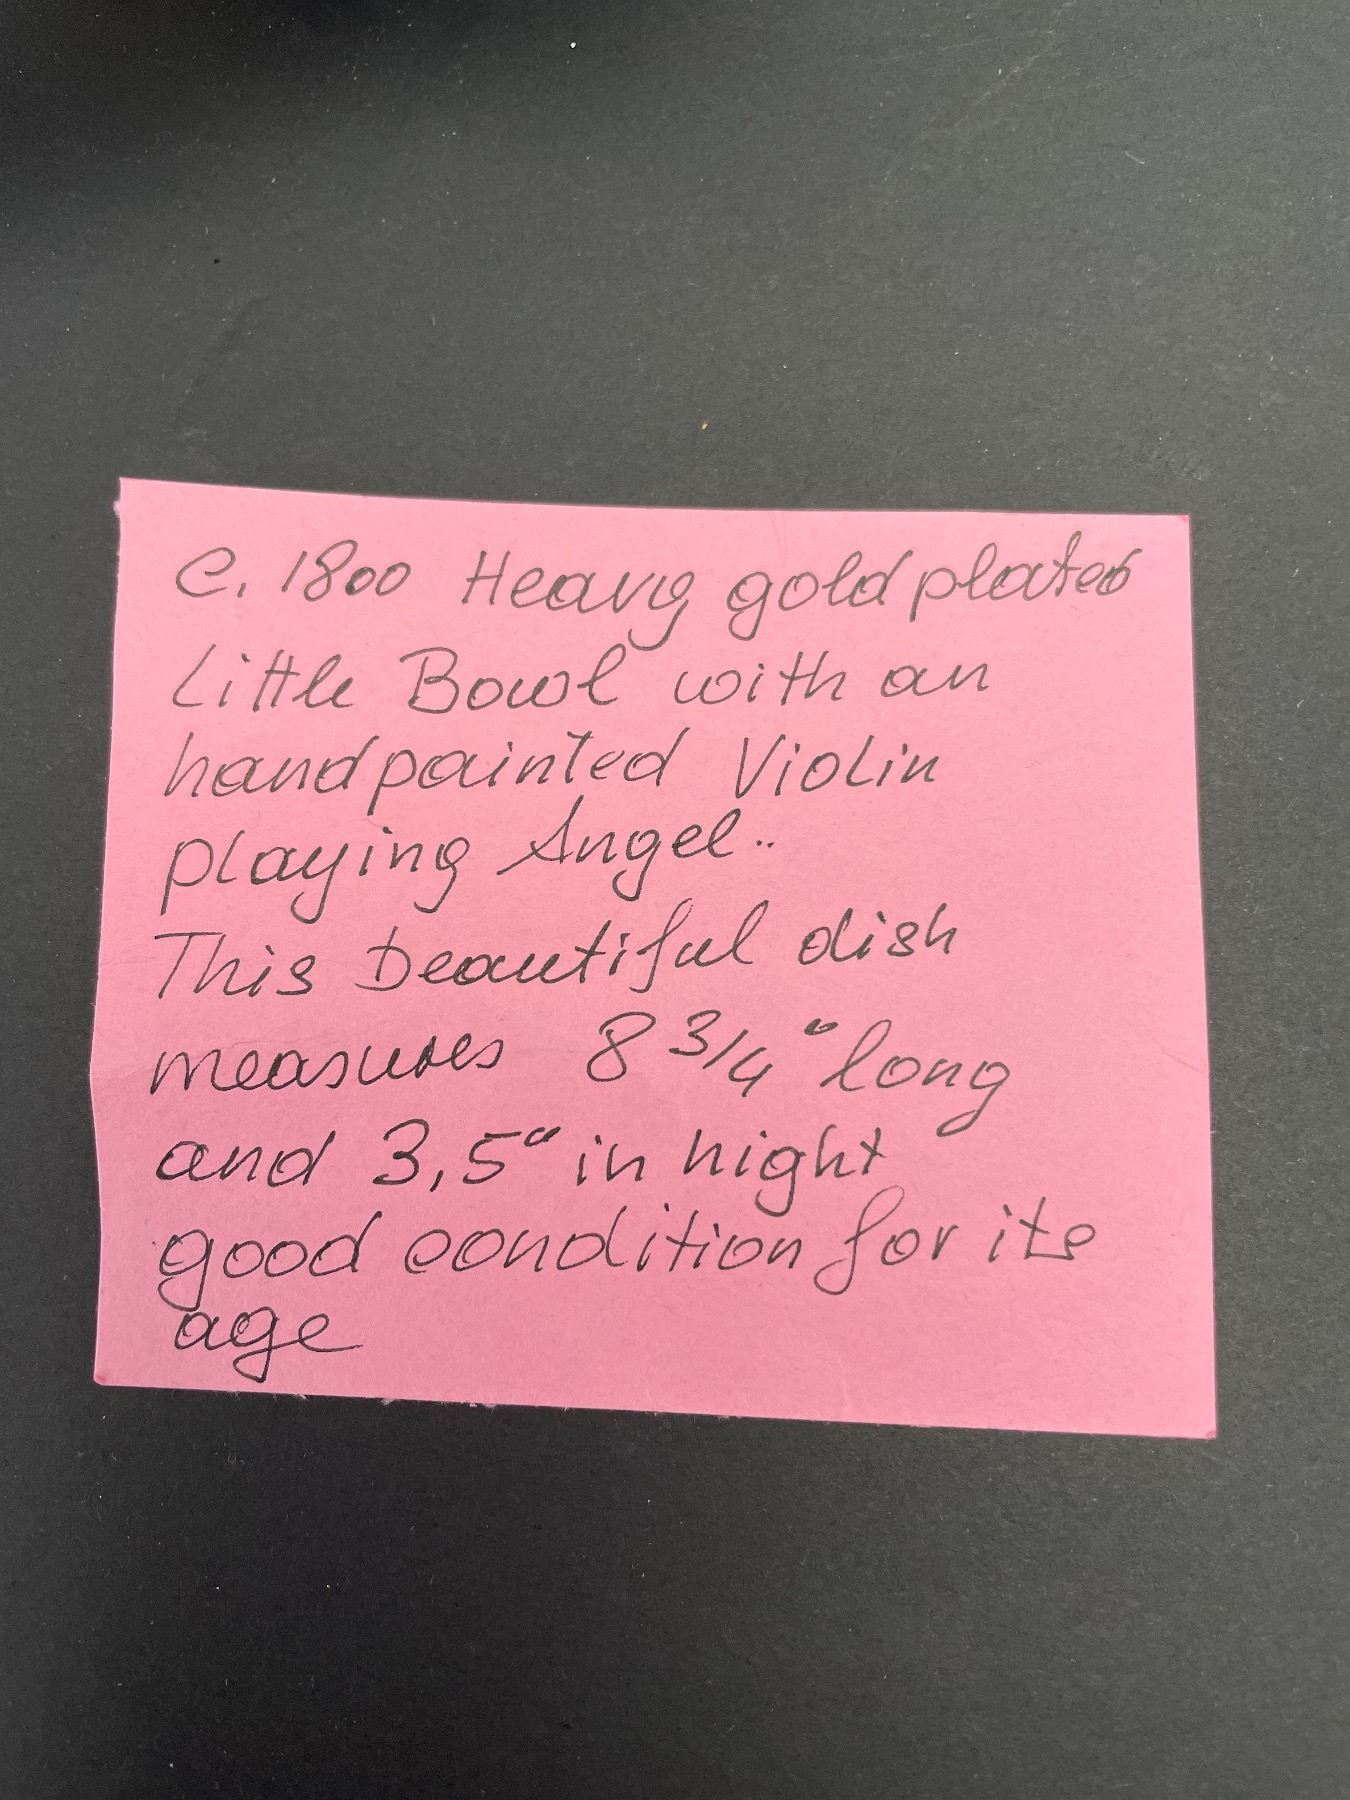 c. 1800 Heavy gold plated
Little Bowl with an
hand painted Violin
playing Angel..
This beautiful dish
measures 8 3/4" long
and 3,5" in hight
good condition for its
age